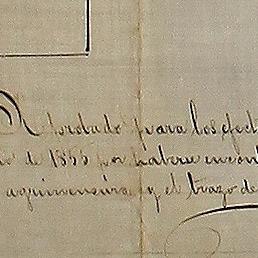 Recordado para los efect
io de 1855 por haberse encont
agrimensura y el trazo de